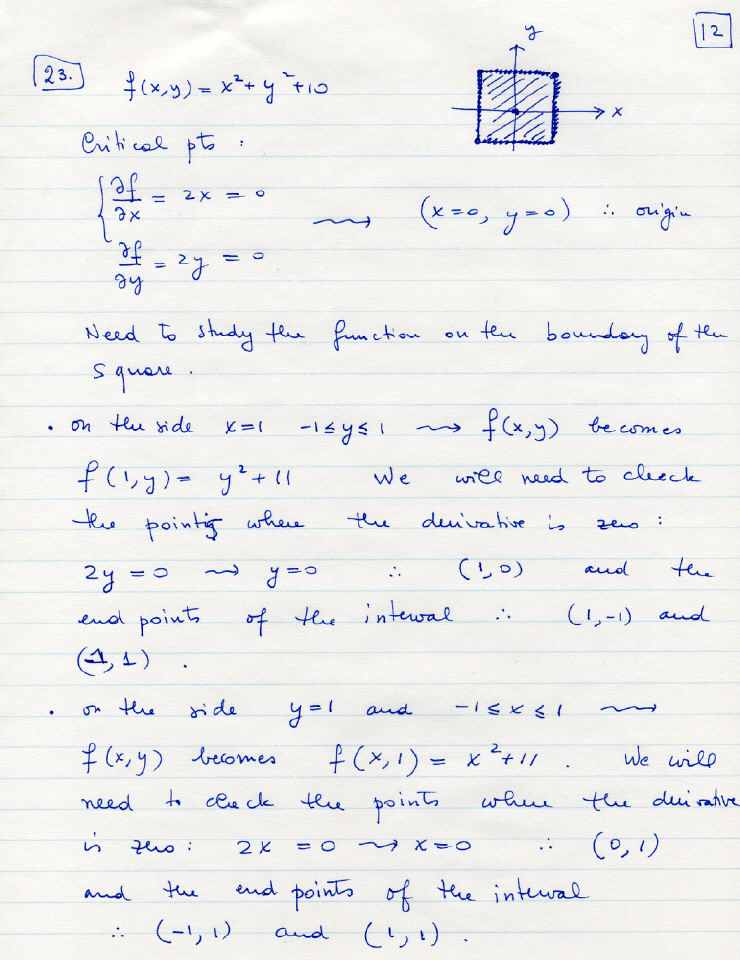 12
23. f(x,y) = x² + y² + 10
y
x
Critical pts :
∂f/∂x = 2x = 0
(x=0, y=0) ∴ origin
∂f/∂y = 2y = 0
Need to study the function on the boundary of the
square.
• on the side x=1 -1≤y≤1 ⇝ f(x,y) becomes
f(1,y) = y² + 11 We will need to check
the points where the derivative is zero :
2y = 0 ⇝ y=0 ∴ (1,0) and the
end points of the interval ∴ (1,-1) and
(1, 1) .
• on the side y=1 and -1≤x≤1 ⇝
f(x,y) becomes f(x,1) = x² + 11 . We will
need to check the points where the derivative
is zero : 2x = 0 ⇝ x=0 ∴ (0,1)
and the end points of the interval
∴ (-1,1) and (1,1) .